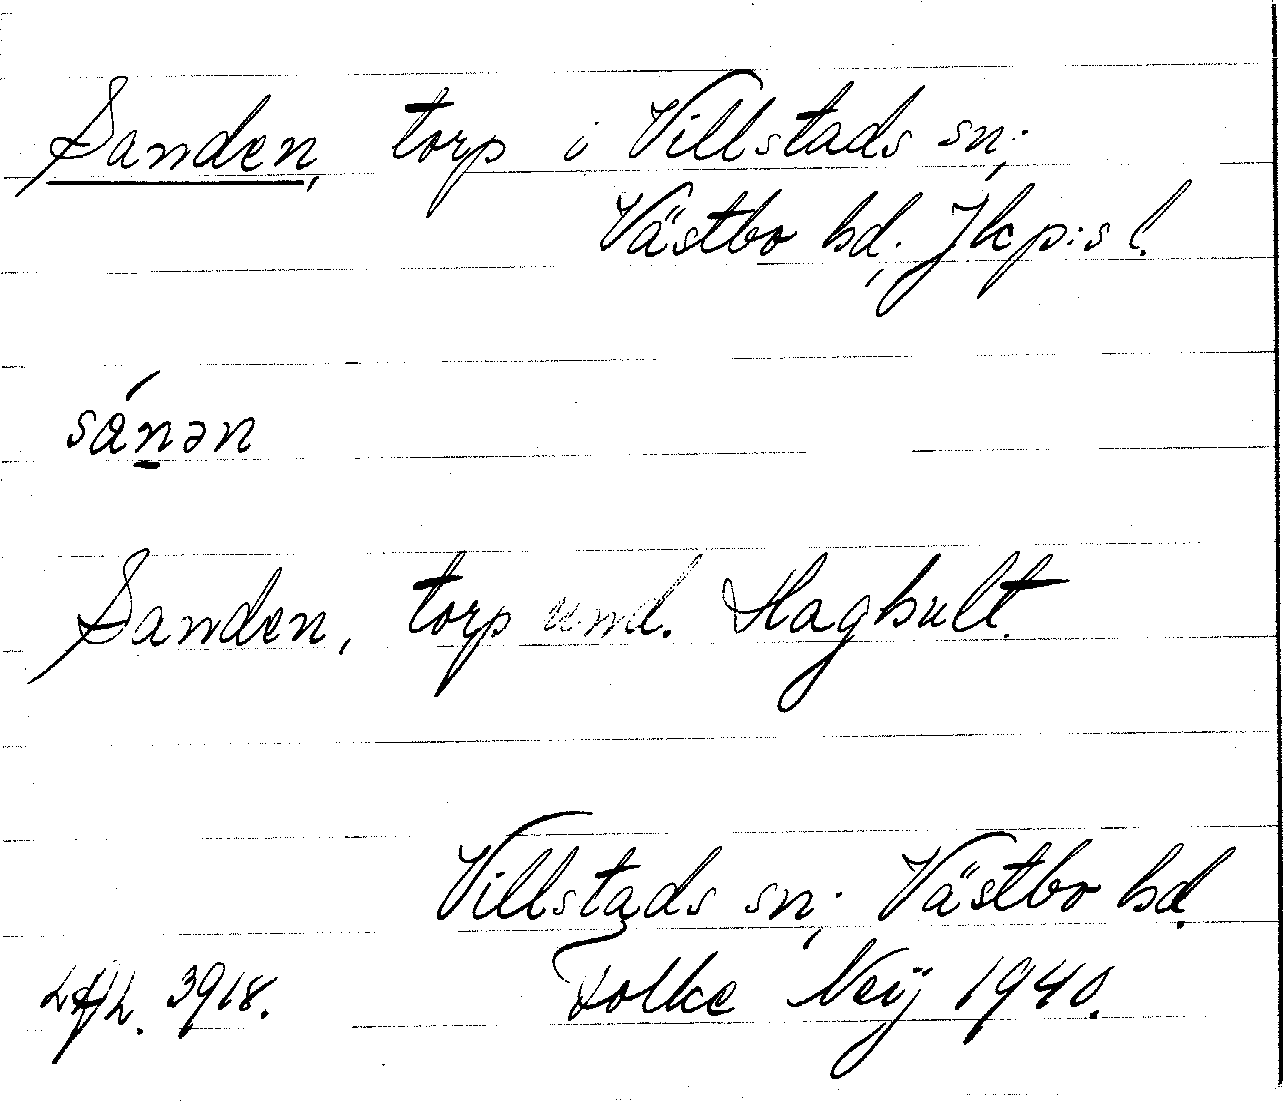 Sanden, torp i Villstads sn,
Västbo hd, Jkp:s l.
sánən
Sanden, torp und. Haghult.
Villstads sn, Västbo hd.
3918. Folke Neij 1940.